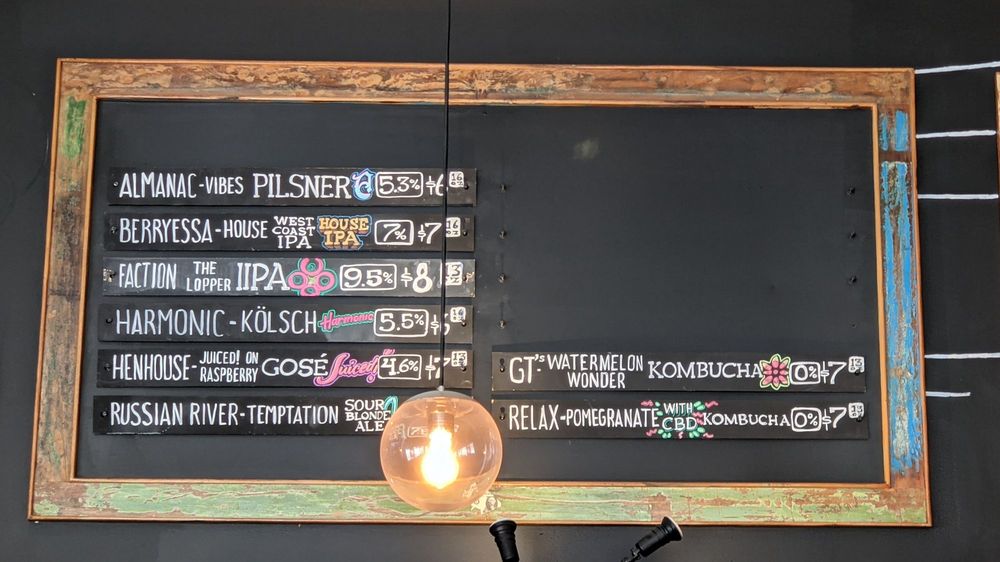 ALMANAC-VIBES PILSNER 5.3% $6 16 oz
BERRYESSA-HOUSE WEST COAST IPA HOUSE IPA 7% $7 16 oz
FACTION THE LOPPER IIPA 9.5% $8 13 oz
HARMONIC-KÖLSCH Harmonic 5.5% 16 oz
HENHOUSE-JUICED! ON RASPBERRY GOSÉ Juiced! 4.6% $7
RUSSIAN RIVER-TEMPTATION SOUR BLONDE ALE
GT'S WATERMELON WONDER KOMBUCHA 0% $7 13 oz
RELAX-POMEGRANATE WITH CBD KOMBUCHA 0% $7 13 oz